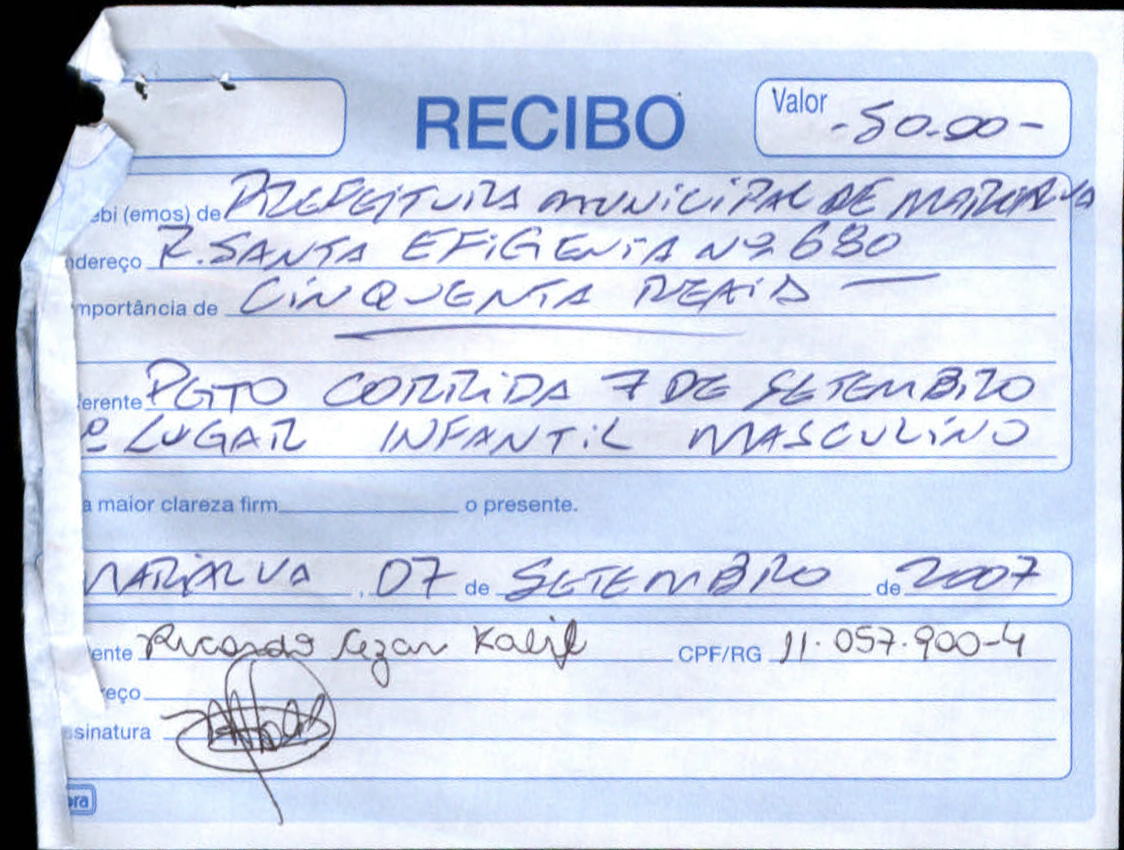 RECIBO
Valor -50.00-
ebi (emos) de PREFEITURA MUNICIPAL DE MARIALVA
ndereço R. SANTA EFIGENIA Nº 680
mportância de CINQUENTA REAIS
erente PGTO CORRIDA 7 DE SETEMBRO
º LUGAR INFANTIL MASCULINO
a maior clareza firm o presente.
MARIALVA, 07 de SETEMBRO de 2007
ente Ricardo Cezar Kalife CPF/RG 11.057.900-4
reço
ssinatura
ora